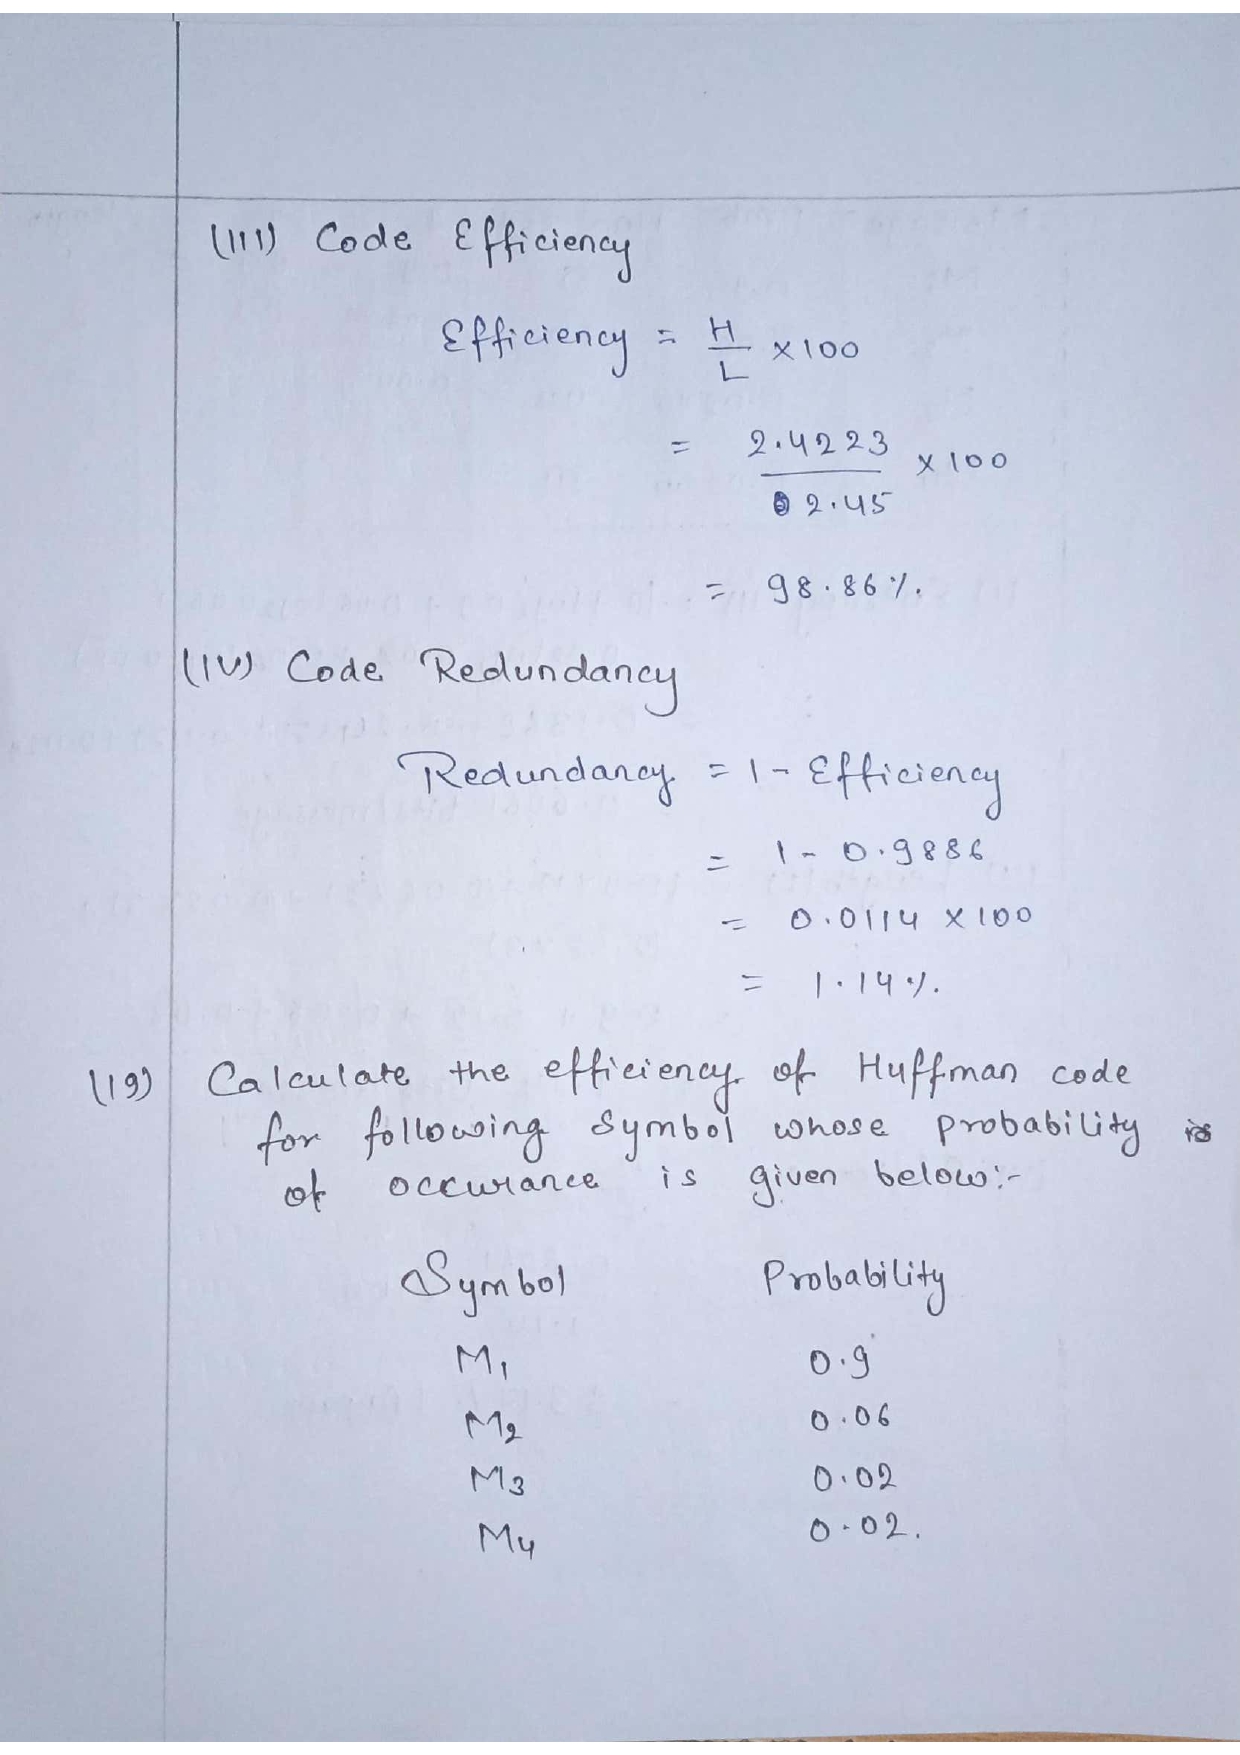 (III) Code Efficiency
Efficiency = H/L × 100
= 2.4223/2.45 × 100
= 98.86%.
(IV) Code Redundancy
Redundancy = 1 - Efficiency
= 1 - 0.9886
= 0.0114 × 100
= 1.14%.
(19) Calculate the efficiency of Huffman code
for following symbol whose probability is
of occurance is given below:-
Symbol Probability
M1 0.9
M2 0.06
M3 0.02
M4 0.02.